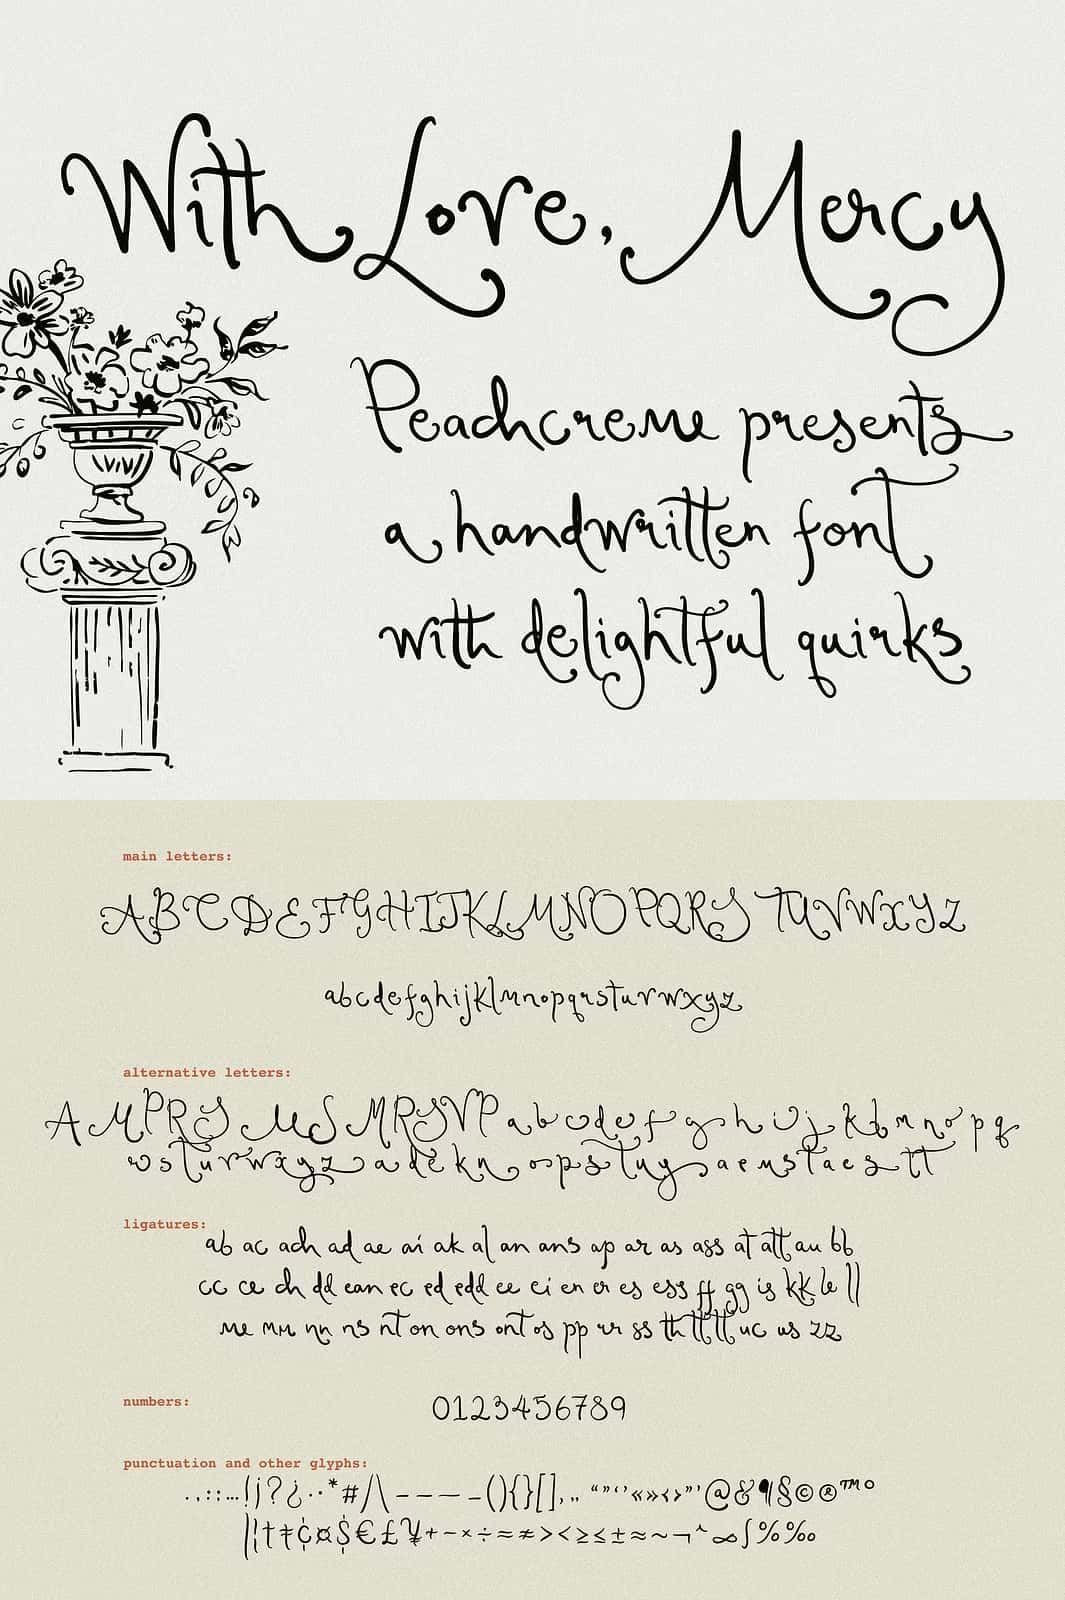 With Love, Mercy
Peachcreme presents
a handwritten font
with delightful quirks
main letters:
ABCDEFGHIJKLMNOPQRSTUVWXYZ
abcdefghijklmnopqrstuvwxyz
alternative letters:
AMPRSMSMRSVPabcdefghijklmnopq
rsturwxyzadeknopstuysaemstaestt
ligatures:
ab ac ach ad ae ai ak al an ans ap ar as ass at att au bb
cc ce ch dd ean ec ed edd ee ei en er es ess ff gg is kk le ll
me mm nn ns nt on ons ont os pp rr ss th tt tt uc us zz
numbers:
0123456789
punctuation and other glyphs:
.,:;…!¡?¿·•*#/\-–—_(){}[]‚„“”‘’«»‹›"'@&¶§©®™°
|¦†‡¢¤$€£¥+−×÷=≠><≥≤±≈~¬^∞∫%‰